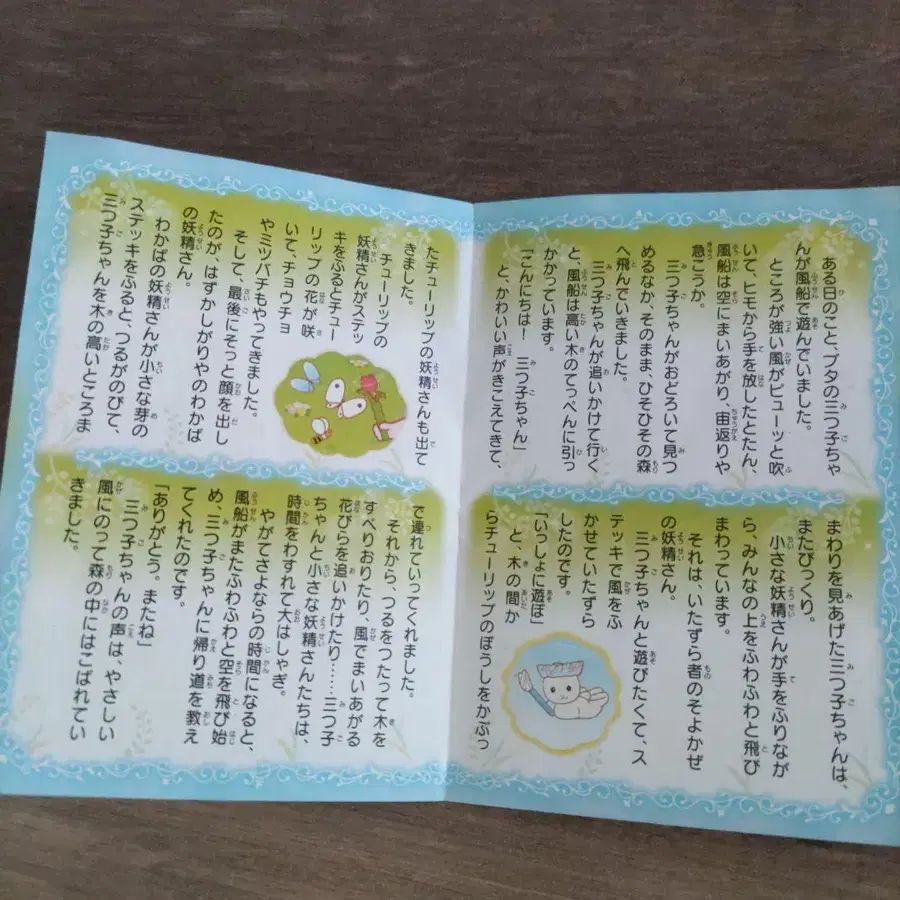 ある日のこと、ブタの三つ子ちゃ
んが風船で遊んでいました。
ところが強い風がピューッと吹
いて、ヒモから手を放したとたん、
風船は空にまいあがり、宙返りや
急こうか。
三つ子ちゃんがおどろいて見つ
めるなか、そのまま、ひそひその森
へ飛んでいきました。
三つ子ちゃんが追いかけて行く
と、風船は高い木のてっぺんに引っ
かかっています。
「こんにちは！　三つ子ちゃん」
と、かわいい声がきこえてきて、
まわりを見あげた三つ子ちゃんは、
またびっくり。
小さな妖精さんが手をふりなが
ら、みんなの上をふわふわと飛び
まわっています。
それは、いたずら者のそよかぜ
の妖精さん。
三つ子ちゃんと遊びたくて、ス
テッキで風をふ
かせていたずら
したのです。
「いっしょに遊ぼ」
と、木の間か
らチューリップのぼうしをかぶっ
たチューリップの妖精さんも出て
きました。
チューリップの
妖精さんがステッ
キをふるとチュー
リップの花が咲
いて、チョウチョ
やミツバチもやってきました。
そして、最後にそっと顔を出し
たのが、はずかしがりやのわかば
の妖精さん。
わかばの妖精さんが小さな芽の
ステッキをふると、つるがのびて、
三つ子ちゃんを木の高いところま
で連れていってくれました。
それから、つるをつたって木を
すべりおりたり、風でまいあがる
花びらを追いかけたり……三つ子
ちゃんと小さな妖精さんたちは、
時間をわすれて大はしゃぎ。
やがてさよならの時間になると、
風船がまたふわふわと空を飛び始
め、三つ子ちゃんに帰り道を教え
てくれたのです。
「ありがとう。またね」
三つ子ちゃんの声は、やさしい
風にのって森の中にはこばれてい
きました。